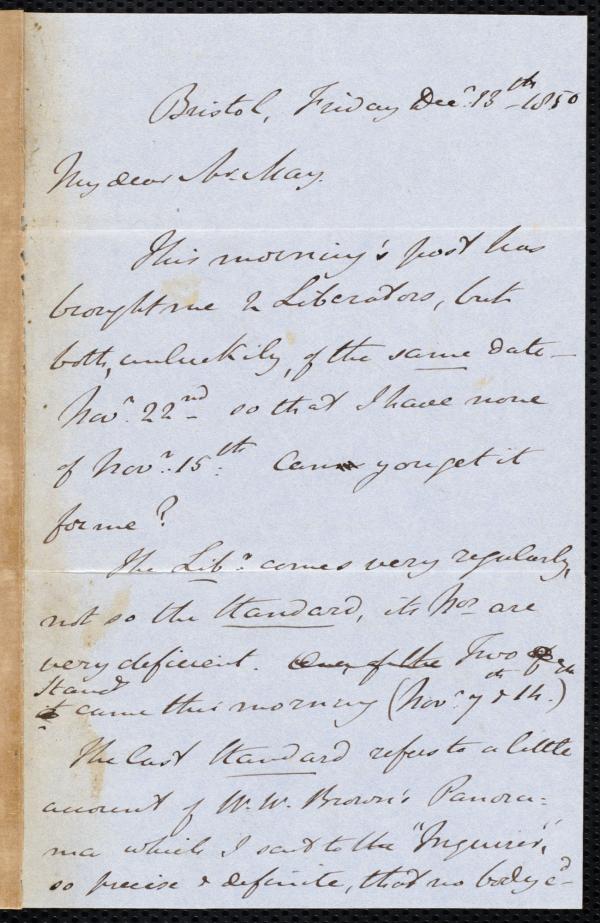 Bristol, Friday Decr. 13th 1850
My dear Mr. May.
This morning's post has
brought me 2 Liberators, but
both, unluckily, of the same date —
Novr. 22nd so that I have none
of Novr. 15th. Can you get it
for me?
The Libr. comes very regularly,
not so the Standard, its Nos. are
very deficient. One of the Two of the
Standd
came this morning (Novr. 7th & 14.)
The last Standard refers to a little
account of W. W. Brown's Panora=
ma which I sent to the "Inquirer",
so precise & definite, that no body cd